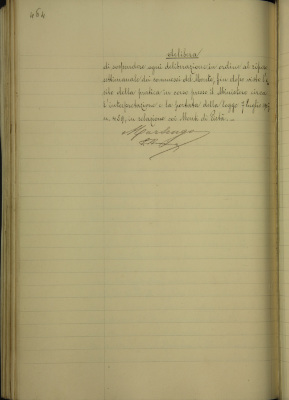 464
delibera
di sospendere ogni deliberazione in ordine al riposo
settimanale dei commessi del Monte, fino dopo visto l'e-
sito della pratica in corso presso il Ministero circa
l'interpretazione e la portata della legge 7 luglio
n. 489, in relazione ai Monti di Pietà. —